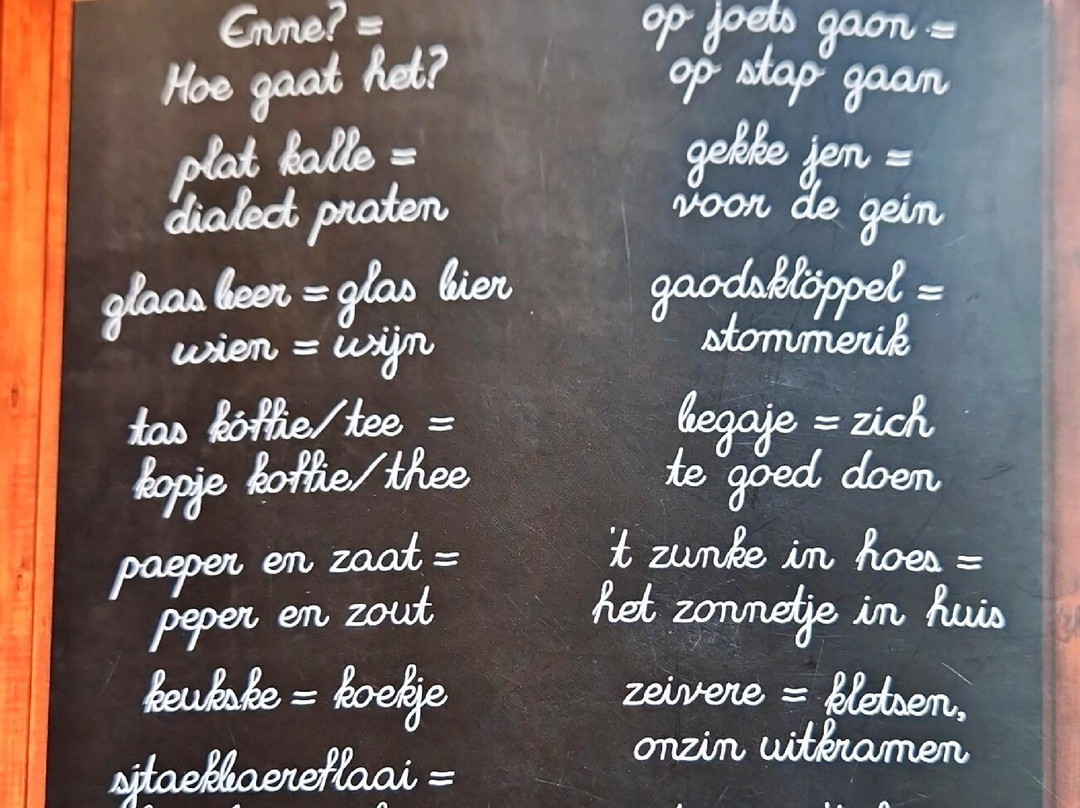 Enne? =
Hoe gaat het?
plat kalle =
dialect praten
glaas beer = glas bier
wien = wijn
tas kóffie/tee =
kopje koffie/thee
paeper en zaat =
peper en zout
keukske = koekje
sjtaekbaereflaai =
op joets gaon =
op stap gaan
gekke jen =
voor de gein
gaodsklöppel =
stommerik
begaje = zich
te goed doen
't zunke in hoes =
het zonnetje in huis
zeivere = kletsen,
onzin uitkramen